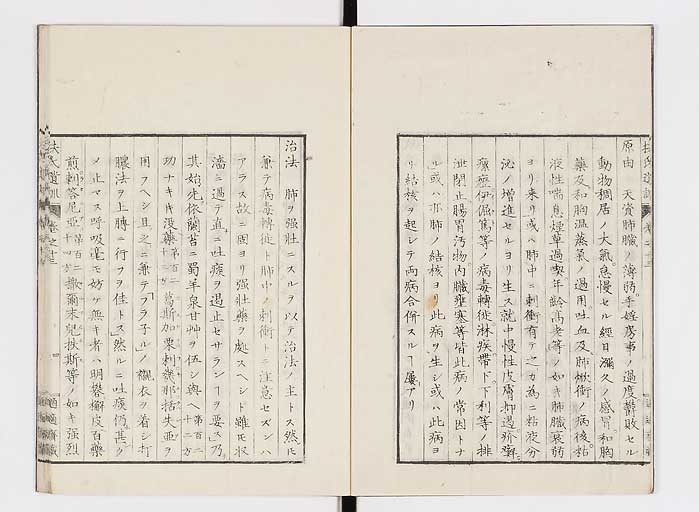 原由 天資肺臓ノ薄弱手婬房事ノ過度欝敗セル
動物稠居ノ大氣怠慢セル經日瀰久ノ感冒和胸
藥及和胸温蒸氣ノ過用吐血及肺焮衝ノ病後粘
液性喘息煙草過喫年齢高老等ノ如キ肺臓衰弱
ヨリ来リ或ハ肺中ニ刺衝有テ之カ為ニ粘液分
泌ノ増進セルヨリ生ス就中慢性皮膚抑遏疥癬
瘰癧伊偶篤等ノ病毒轉徙淋疾帶下下利等ノ排
泄閉止腸胃汚物内臓壅塞等皆此病ノ常因トナ
ル或ハ亦肺ノ結核ヨリ此病ヲ生シ或ハ此病ヨ
リ結核ヲ起シテ両病合併スルヿ屢アリ
扶氏遺訓 卷之十三
治法 肺ヲ強壮ニスルヲ以テ治法ノ主トス然𪜈
兼テ病毒轉徙ト肺中ノ刺衝トニ注意セズンハ
アラス故ニ固ヨリ強壮藥ヲ處スヘシト雖𪜈収
濇ニ過テ直ニ吐痰ヲ遏止セサランヿヲ要ス乃
其始先依蘭苔ニ蜀羊泉甘艸ヲ伍シ與 第百二十二方
功ナキ𪜈没藥 第百二 葛斯加栗刺幾那括失亜ヲ
用フヘシ且之ニ兼テ「フラ子ル」ノ襯衣ヲ着シ打
膿法ヲ上膊ニ行フヲ佳トス然ルニ吐痰仍甚ク
ノ止マス呼吸毫モ妨ケ無キ者ハ明礬槲皮百藥
煎刺答尼亜 第百二十四方 撒爾末兒扶斯等ノ如キ強烈
扶氏遺訓 卷之十三
適適齋藏